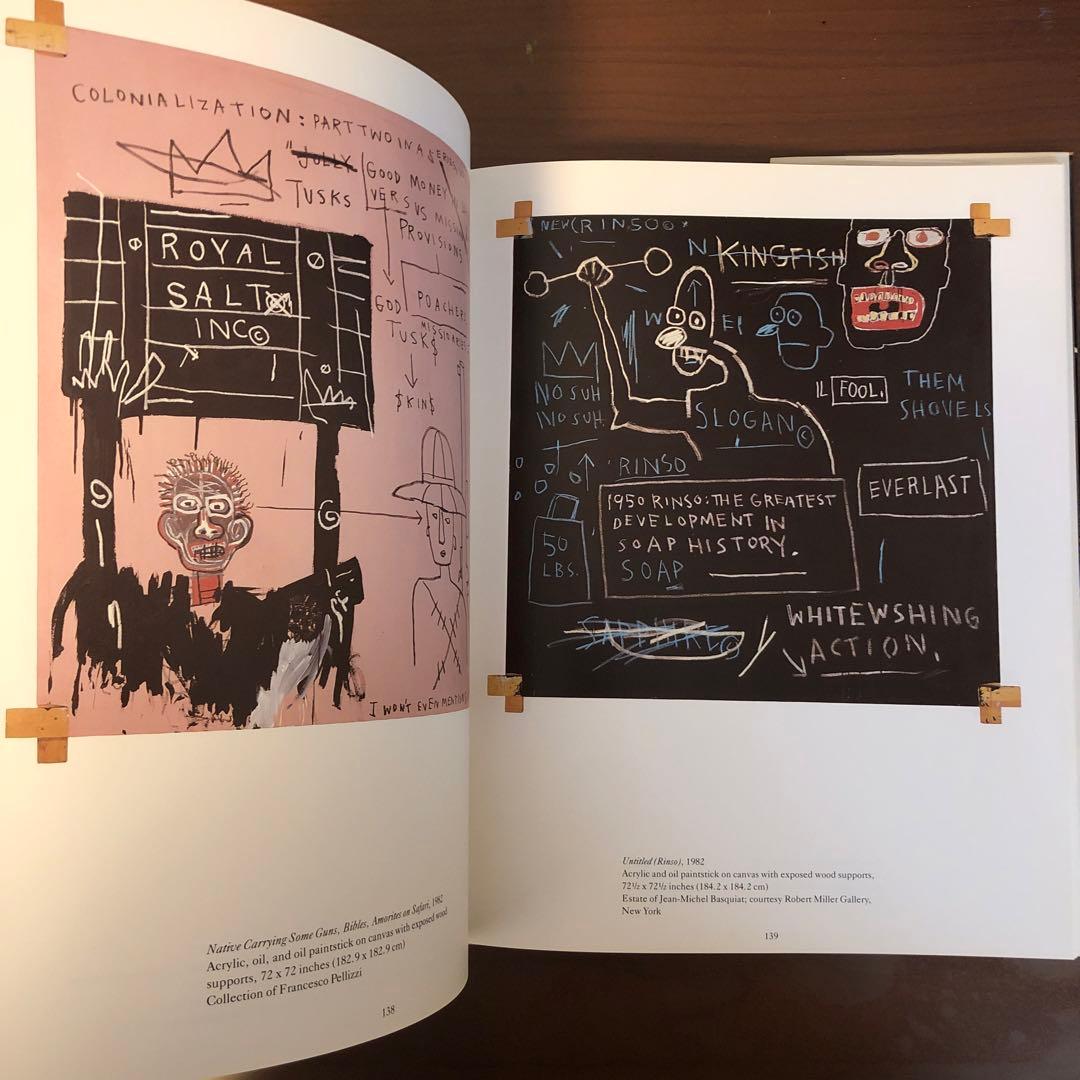 COLONIALIZATION: PART TWO IN A SERIES
"JOLLY
TUSKS
GOOD MONEY
VERSUS
PROVISIONS
ROYAL
SALT
INC©
GOD
TUSK$
POACHERS
MISSIONARIES
$KIN$
I WON'T EVEN MENTION
Native Carrying Some Guns, Bibles, Amorites on Safari, 1982
Acrylic, oil, and oil paintstick on canvas with exposed wood
supports, 72 x 72 inches (182.9 x 182.9 cm)
Collection of Francesco Pellizzi
138
NEW RINSO©*
N KINGFISH
W EI
NO SUH
NO SUH.
SLOGAN©
IL FOOL.
THEM
SHOVELS
RINSO
1950 RINSO: THE GREATEST
DEVELOPMENT IN
SOAP HISTORY.
SOAP
EVERLAST
50
LBS.
SAPPHIRE©
WHITEWSHING
ACTION.
Untitled (Rinso), 1982
Acrylic and oil paintstick on canvas with exposed wood supports,
72½ x 72½ inches (184.2 x 184.2 cm)
Estate of Jean-Michel Basquiat; courtesy Robert Miller Gallery,
New York
139